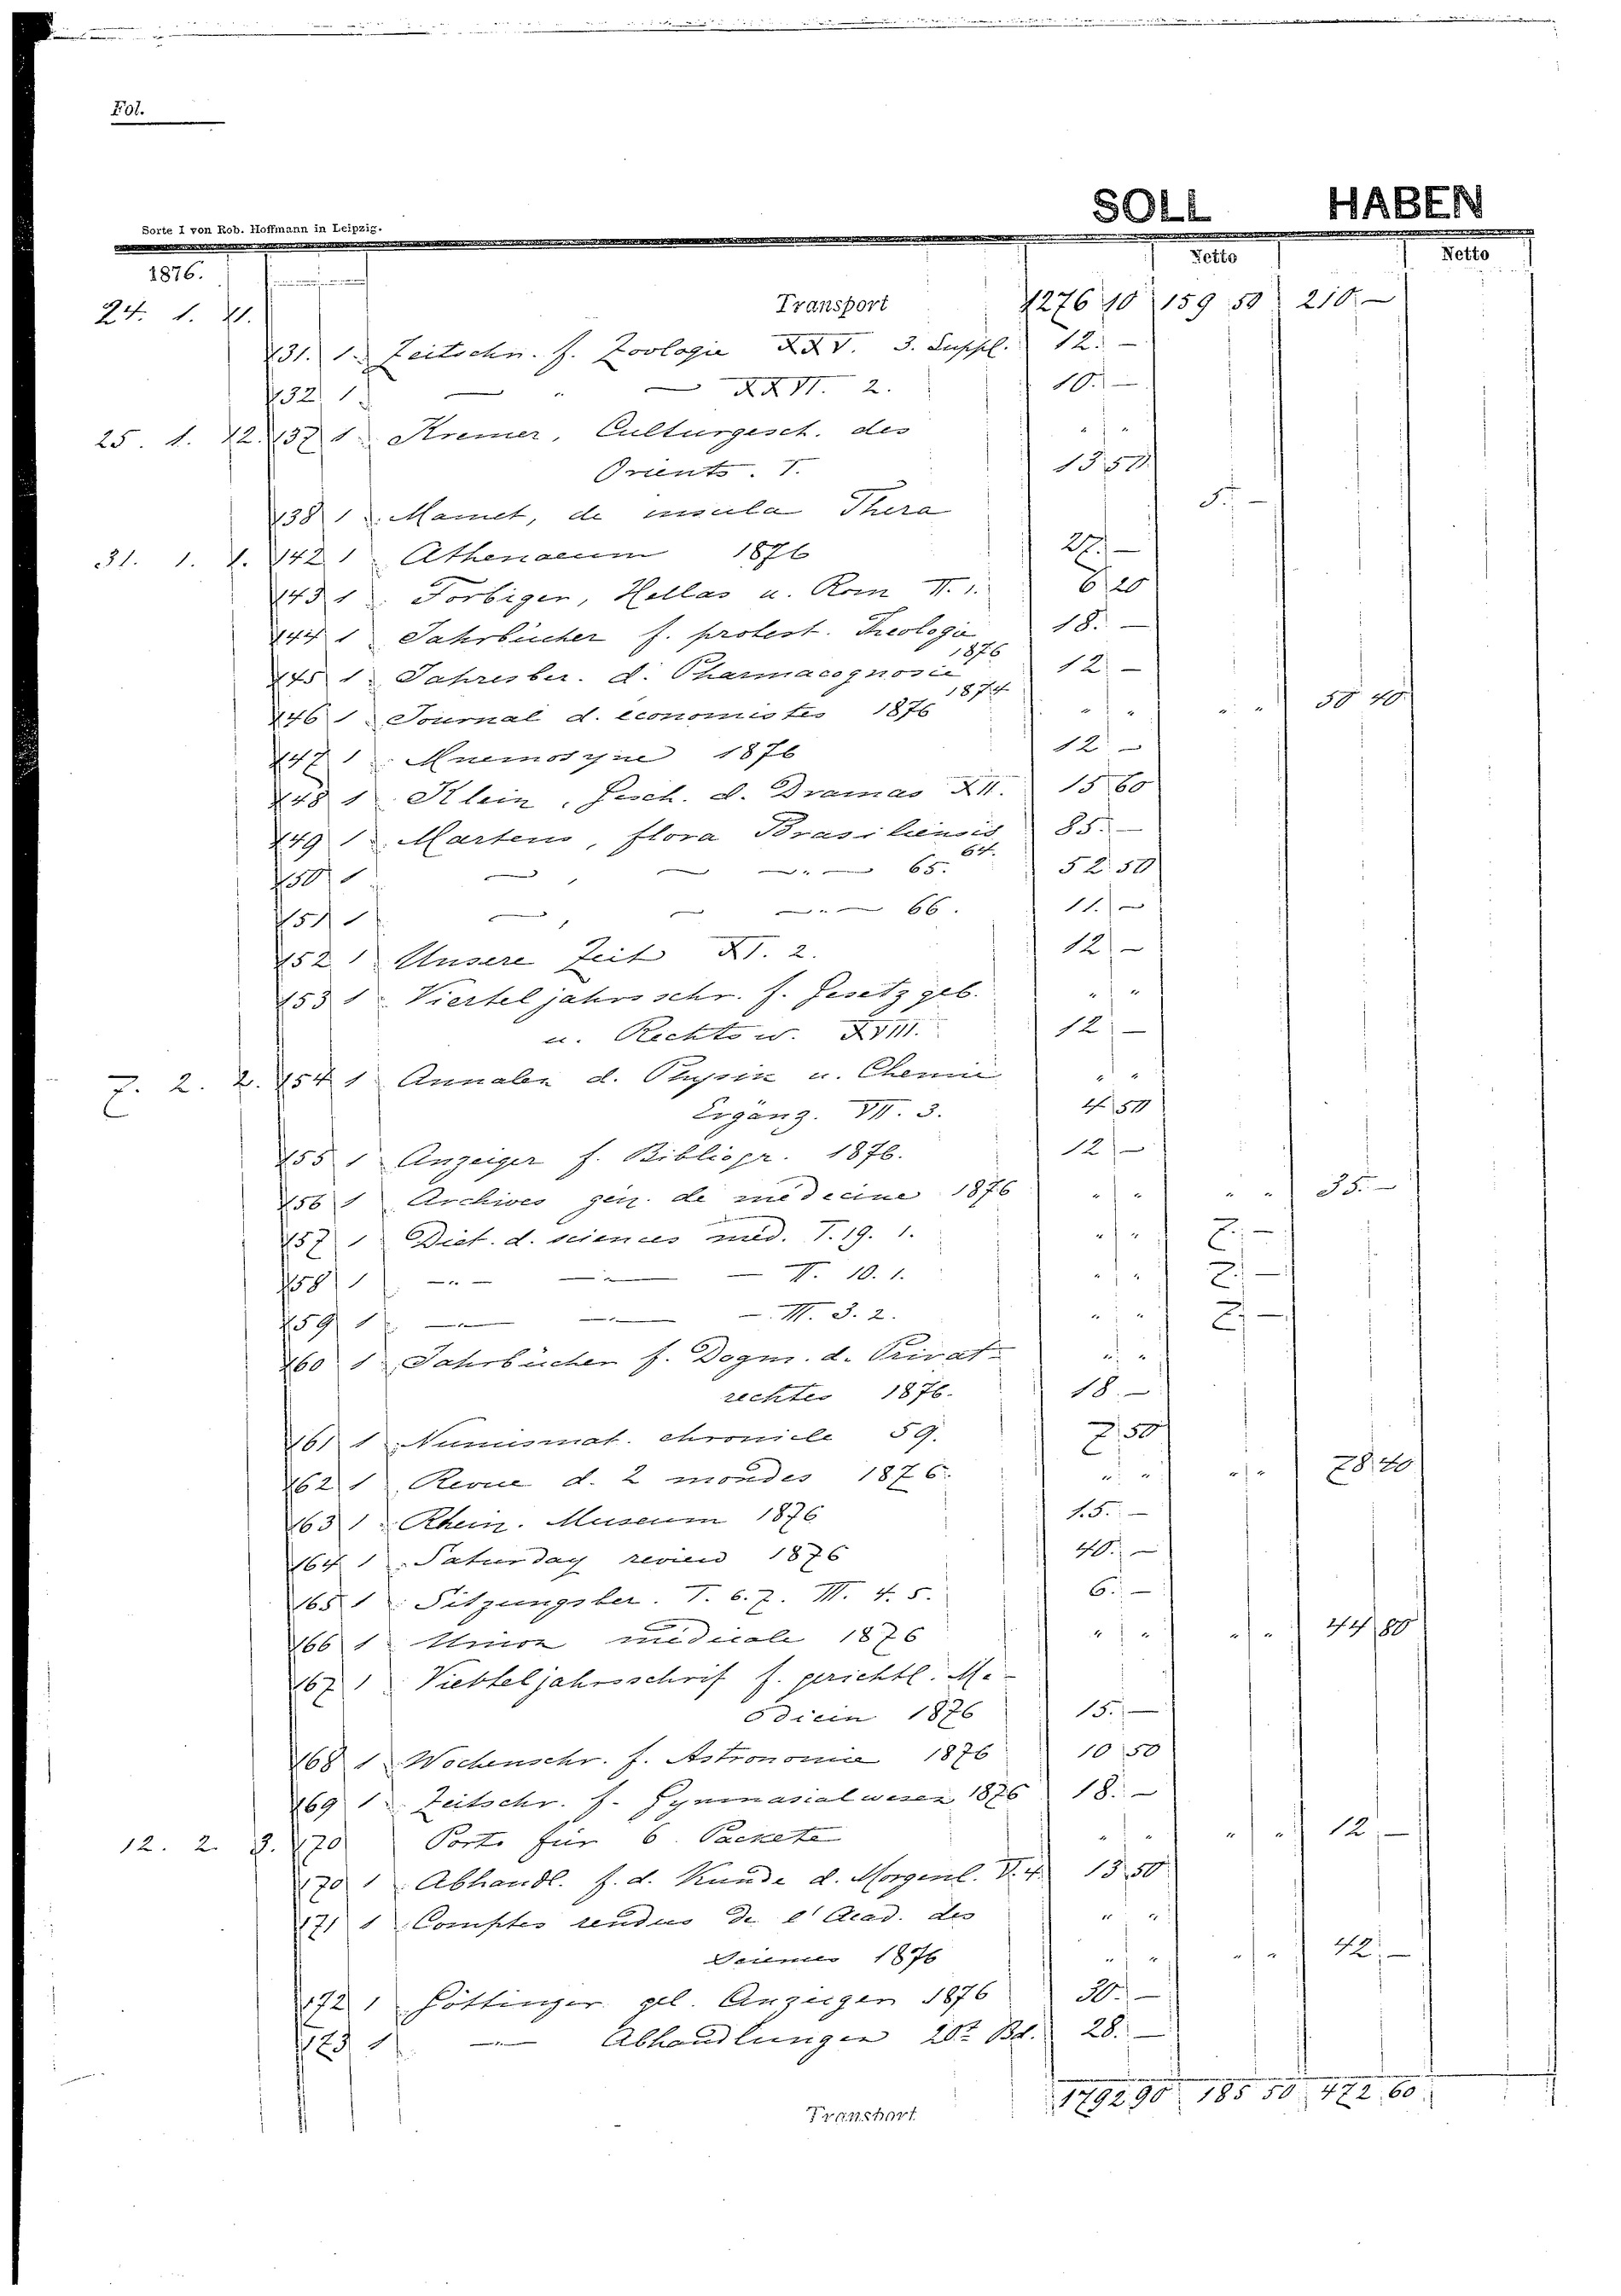 Fol.
SOLL HABEN
Sorte I von Rob. Hoffmann in Leipzig.
Netto Netto
1876.
24. 1. 11. Transport 1276 10 159 50 210.—
131. 1. Zeitschr. f. Zoologie XXV. 3. Suppl. 12.—
132 1. — " — XXVI. 2. 10.—
25. 1. 12. 137 1. Kremer, Culturgesch. des " "
Orients. I. 13 50
138 1. Mamet, de insula Thera 5.—
31. 1. 1. 142 1 Athenaeum 1876 27.—
143 1. Forbiger, Hellas u. Rom II. 1. 6 20
144 1 Jahrbücher f. protest. Theologie 1876 18.—
145 1 Jahresber. d. Pharmacognosie 1874 12.—
146 1 Journal d. economistes 1876 " " " " 50 40
147 1. Mnemosyne 1876 12.—
148 1. Klein, Gesch. d. Dramas XII. 15 60
149 1. Martens, flora Brasiliensis 64. 85.—
150 1 — , — — " — 65. 52.50
151 1 — , — — " — 66. 11.—
152 1 Unsere Zeit XI. 2. 12.—
153 1. Vierteljahrsschr. f. Gesetzgeb. " "
u. Rechtsw. XVIII. 12.—
7. 2. 2. 154 1 Annalen d. Physik u. Chemie " "
Ergänz. VII. 3. 4 50
155 1 Anzeiger f. Bibliogr. 1876. 12.—
156 1 Archives gén. de médecine 1876 " " " " 35.—
157 1 Dict. d. sciences méd. I. 19. 1. " " 7.—
158 1 — " — — " — — II. 10. 1. " " 7.—
159 1 — " — — " — — III. 3. 2. " " 7.—
160 1. Jahrbücher f. Dogm. d. Privat- " "
rechtes 1876. 18.—
161 1 Numismat. chronicle 59. 7.50
162 1 Revue d. 2 mondes 1876. " " " " 78.40
163 1. Rhein. Museum 1876 15.—
164 1. Saturday review 1876 40.—
165 1. Sitzungsber. I. 6.7. III. 4. 5. 6.—
166 1. Union médicale 1876 " " " " 44 80
167 1 Viertteljahrsschrif f. gerichtl. Me-
dicin 1876 15.—
168 1 Wochenschr. f. Astronomie 1876 10 50
169 1. Zeitschr. f. Gymnasialwesen 1876 18.—
12. 2. 3. 170 Porto für 6 Packete " " " " 12.—
170 1. Abhandl. f. d. Kunde d. Morgenl. V. 4 13.50
171 1 Comptes rendus de l' Acad. des " "
Sciences 1876 " " " " 42.—
172 1 Göttinger gel. Anzeigen 1876 30.—
173 1 — " — Abhandlungen 20r Bd. 28.—
Transport 1792 90 185 50 472 60